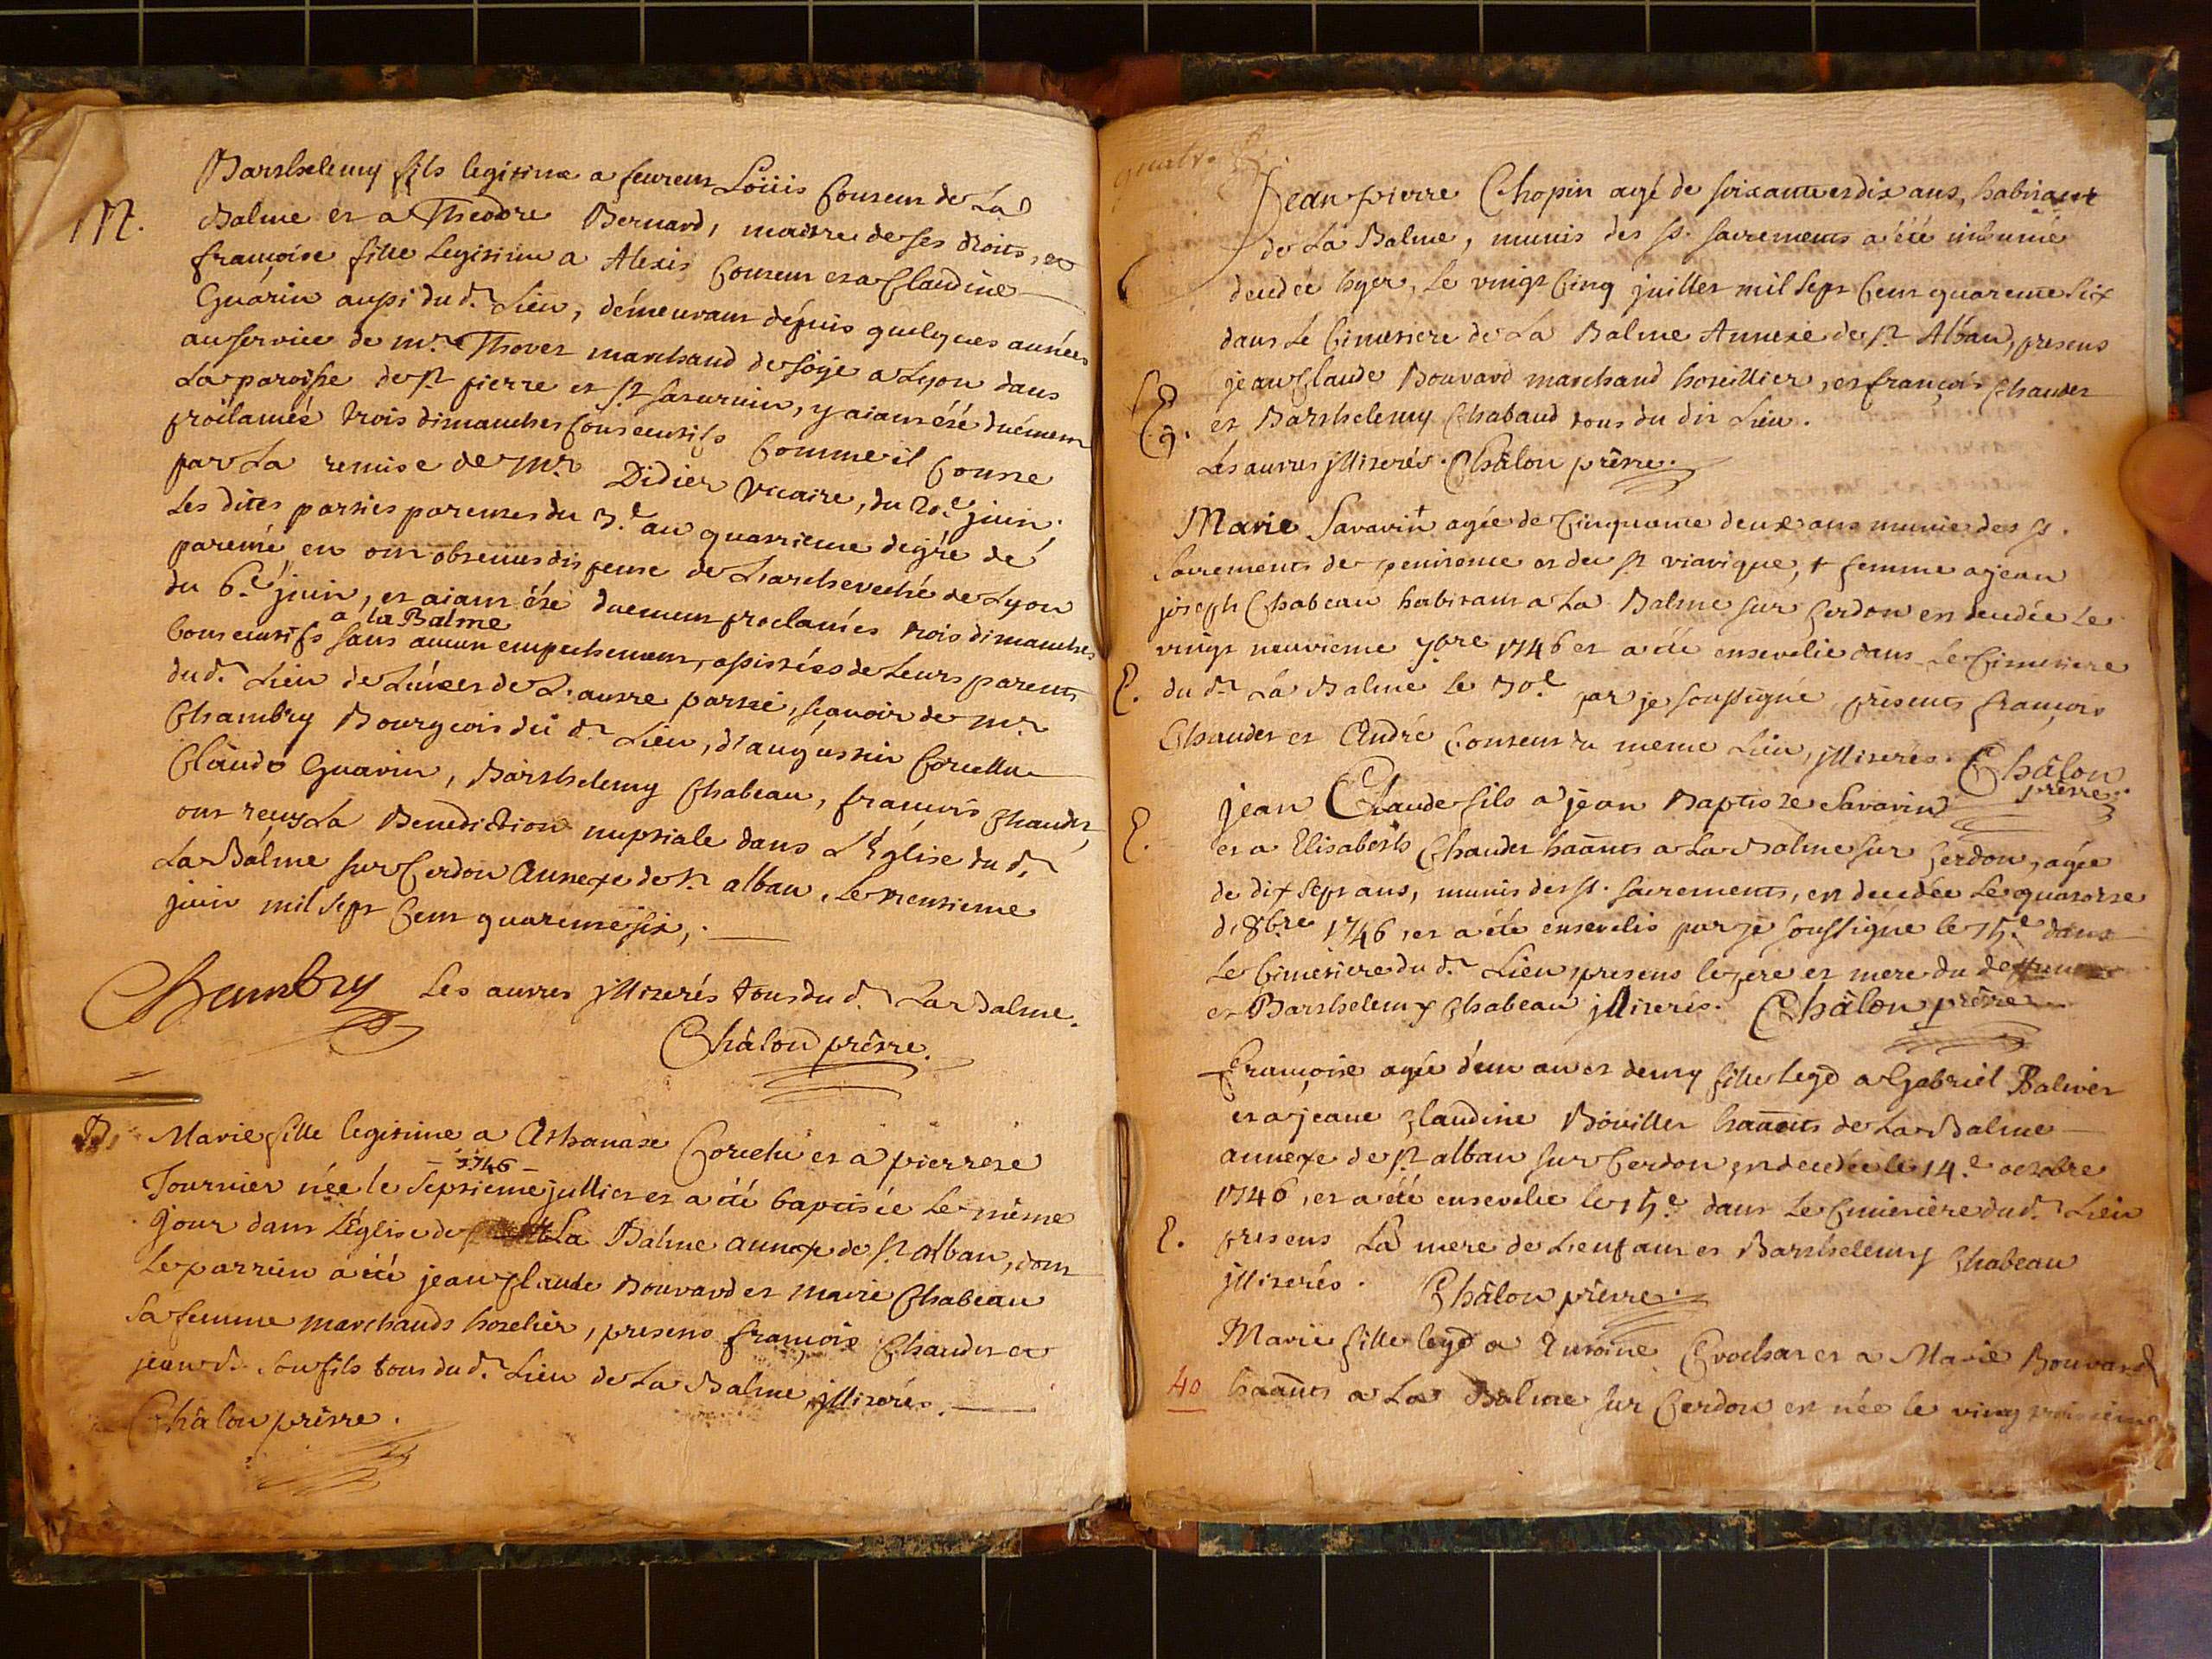 M.
Barthelemy fils legitime a feu reun Loüis Couseur de La
Balme et a Theodre Bernard, maitre de ses droits, et
françoise fille Legitime a Alexis Couseur et a Claudine
Guárin aussi du d.t Lieu, démeurant dépuis quelques années
au service de mr. Thovet marchand de soÿe a Lyon dans
La paroisse de st pierre et st saturnin, y aiant été duément
proclamée trois dimanches consecutifs comme il conste
par La remise de Mr. Didier vicaire, du 20.e juin,
Les dites parties parentes du 3.e au quatrieme degre de
parenté en ont obtenus dispense de L'archeveché de Lyon
du 6.e juin, et aiant été duement proclamés trois dimanches
a la Balme
Consecutifs sans aucun empechement, assistées de Leurs parents
du d.t Lieu de L'un et de L'autre partie, sçavoir de Mr.
Chambry Bourgeois du d.t Lieu, d'augustin Corcellu
Claude Guarin, Barthelemy Chabeau, françois Chaudet,
ont reçus La Benediction nuptiale dans L'Église du d.t
La Balme sur Cerdon Annexe de st alban, Le trentieme
juin mil sept Cent quarente six,.
Chambry Les autres jllizerés tous du d.t La Balme.
Châlon prêtre.
B.
Marie fille legitime a Athanase Corcelu et a pierrere
- 1746 -
Tournier née le septieme jullier et a été baptisée Le même
jour dans L'Église de La Balme annexe de st alban, dont
Le parrein a été jean Claude Bouvard et marie Chabeau
sa femme marchands hotelier, presens françois Chaudet et
jean B. son fils tous du d.t Lieu de La Balme jllizerés.
Châlon prêtre.
quatre
Jean pierre Chopin agé de soixante et dix ans, habitant
de La Balme, munis des st. sacrements a été inhumé
decedée hyer, Le vingt Cinq juillet mil sept Cent quarente six
dans Le Cimetiere de La Balme Annexe de st Alban, presens
jean Claude Bouvard marchand hoteillier, et françois Chaudet
et Barthelemy Chabaud tous du dit Lieu.
Les autres jllizerés. Châlon prêtre.
Marie Savarin agée de Cinquante deux ans munie des st.
Sacrements de penitence et du st viatique, + femme a jean
joseph Chabeau habitant a La Balme sur Cerdon est decedée Le
vingt neuvieme 7bre 1746 et a été ensevelie dans Le Cimetiere
E. du d.t La Balme Le 30.e par je soussigné presents françois
Chaudet et André Couseur du meme Lieu, jllizerés. Châlon
prêtre.
E.
jean Claude fils a jean Baptiste Savarin
et a Elisabeth Chaudet haānts a La Balme sur Cerdon, agée
de dix sept ans, munis des st. sacrements, est decedée Le quatorze
d. 8bre 1746, et a été ensevelis par je soussigné le 15.e dans
Le Cimetiere du d.t Lieu presens le pere et mere du deffunct
et Barthelemy Chabeau jllizerés. Châlon prêtre
Françoise agée d'un an et demy fille legē a Gabriel Balivet
et a jeane Claudine Bouiller haānts de La Balme
annexe de st alban sur Cerdon est decedée le 14.e octobre
1746, et a été ensevelie le 15.e dans Le Cimetiere du d.t Lieu
E. presens La mere de L'enfant et Barthelemy Chabeau
jllizerés. Châlon prêtre.
Marie fille legē a Antoine Crochat et a Marie Bouvard
40 haānts a La Balme sur Cerdon est née le vingt troisieme